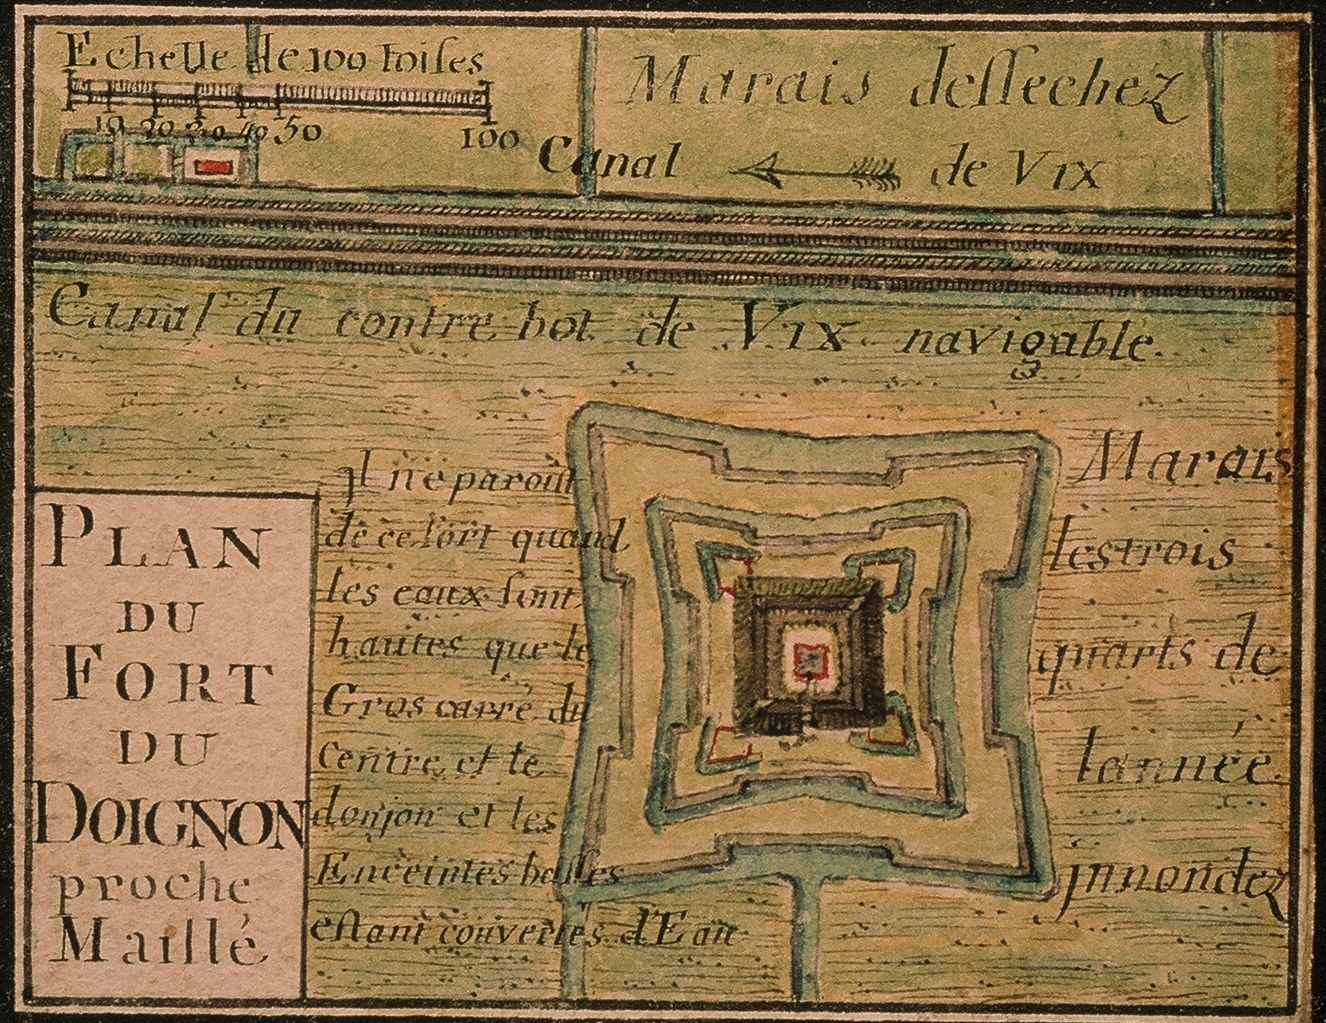 Echelle de 100 toiſes
10 20 30 40 50 100
Marais deſſechéz
Canal de VIX
Canal du contre bot de VIX navigable.
PLAN
DU
FORT
DU
DOIGNON
proche
Maillé
Jl ne paroiſt
de ce fort quand
les eaux ſont
hautes que le
Gros carré du
centre et le
donjon et les
Enceintes baſſes
eſtant couvertes d'Eau
Marais
les trois
quarts de
lannée
jnnondez